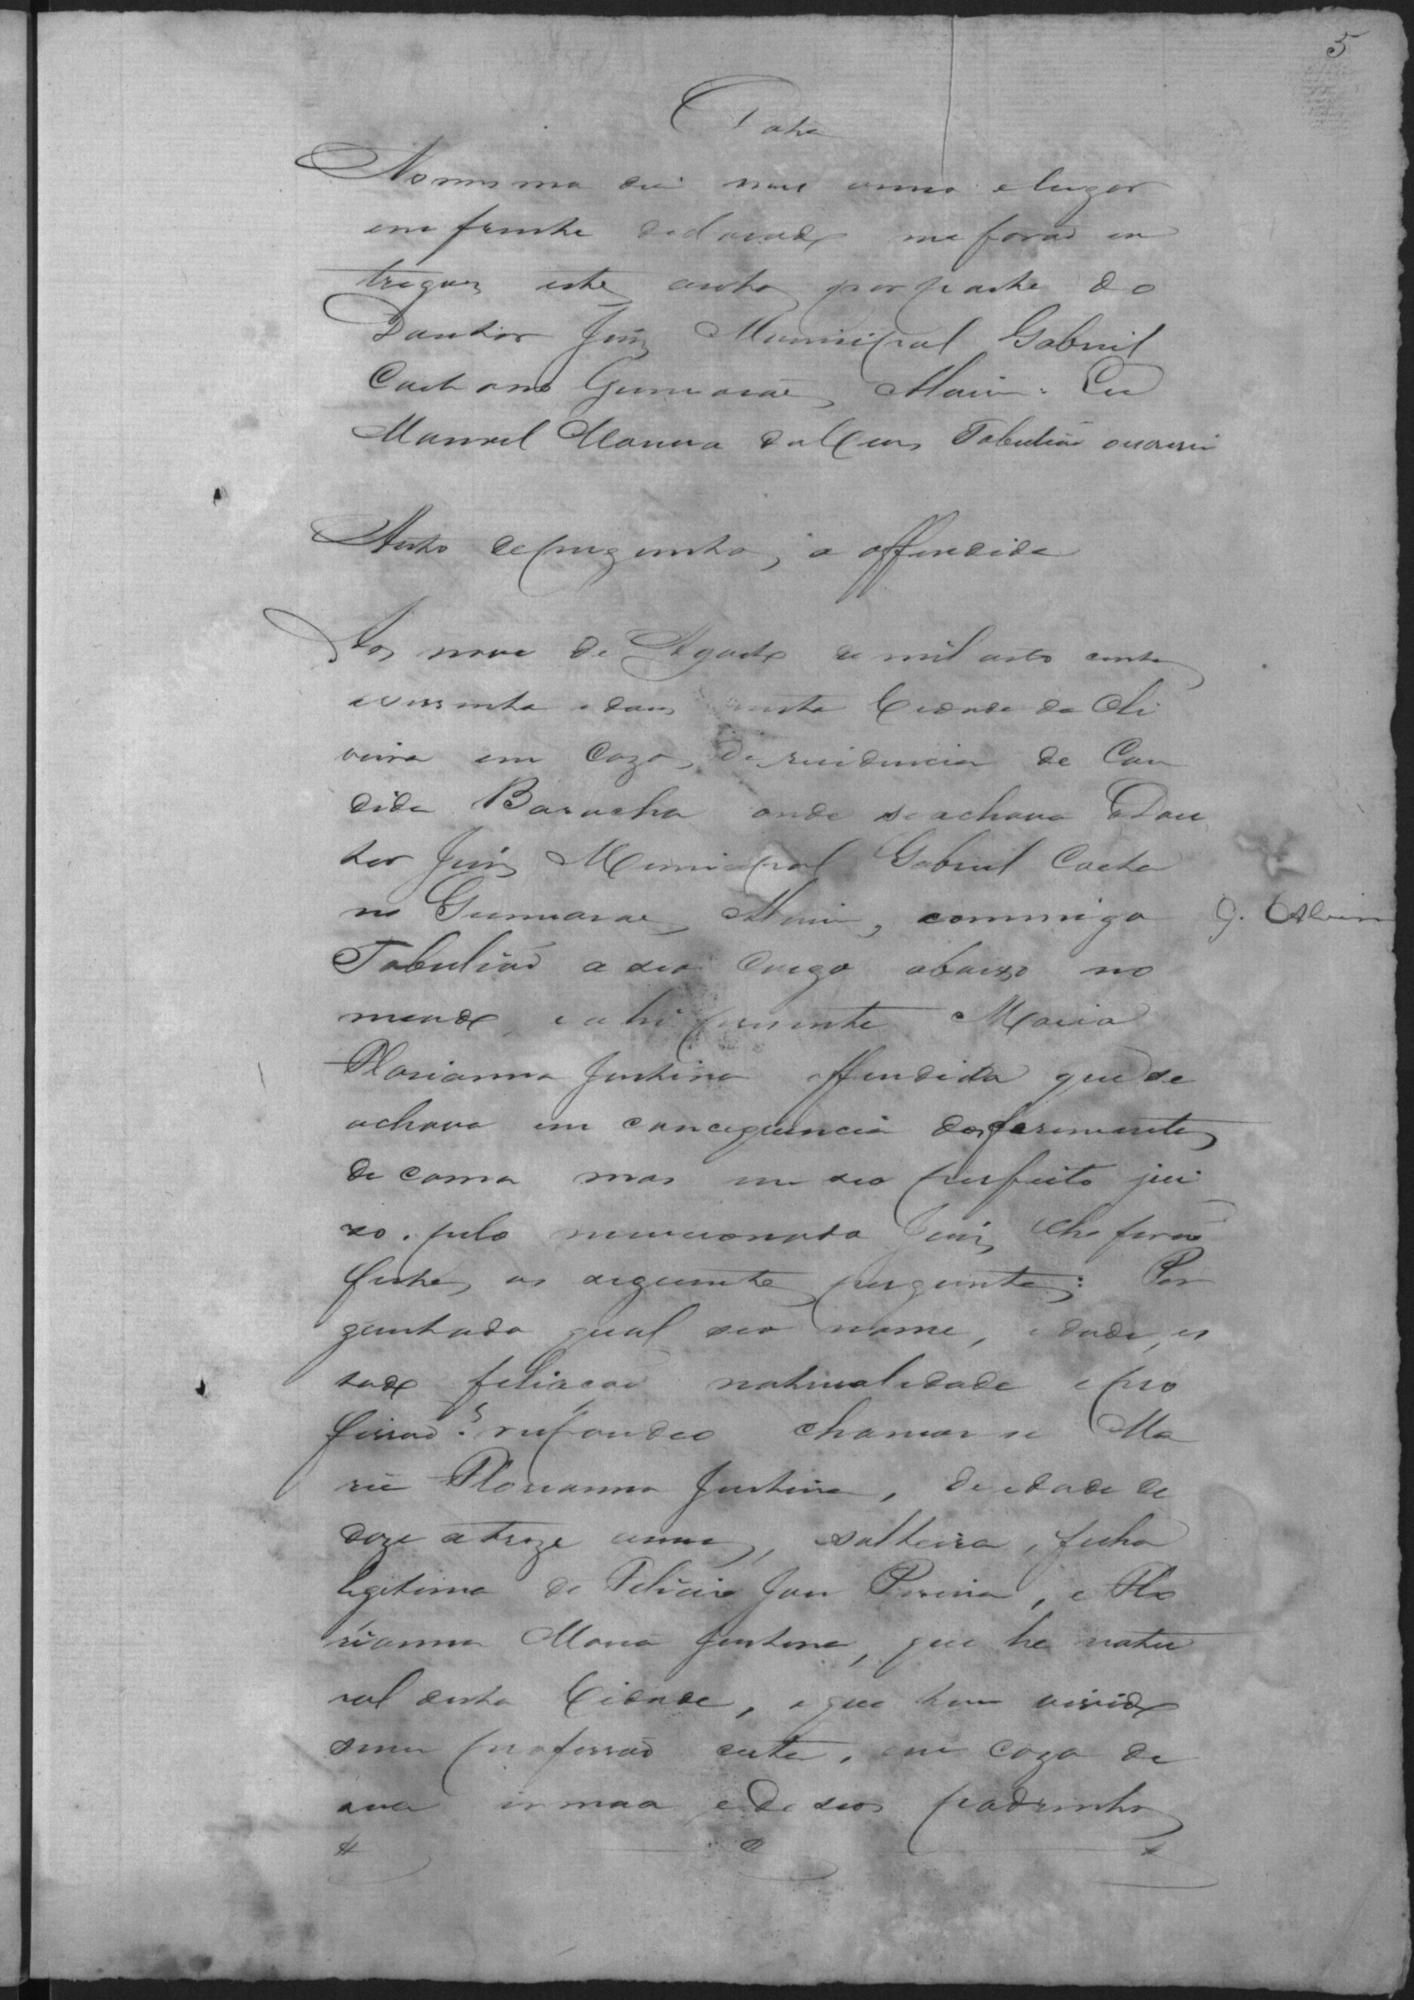 5
Data
No mesmo dia mes anno e lugar
em frente declarado me forão en
tregues estes autos por parte do
Doutor Juis Municipal Gabriel
Caetano Guimarães Eu
Manoel da Tabelião
Auto de preguntas, a offendida
Aos nove de Agosto de mil oito centos
e oitenta e dous nesta Cidade da Oli
veira em Caza, de rezidencia de Can
dida Baracha onde se achava o Dou
tor Juis Municipal Gabriel Caeta
no Guimarães, commigo
Tabelião a seo Cargo abaixo no
meado, e ahi prezente Maria
Florianna Justina offendida que se
achava em concequencia dos ferimentos
de cama mas em seo perfeito jui
zo. pelo mencionado Juis lhe forão
feitas as seguintes perguntas: Per
guntada qual seo nome, idade, es
tado filiação naturalidade e pro
fissão? respondeo chamar se Ma
ria Florianna Justina, de idade de
doze a treze annos, solteira, filha
legitima de Felicio José Pereira, e Flo
rianna Maria Justina, que he natu
ral desta Cidade, e que tem vivido
sem profissão certa, em caza de
sua irmaa e de seos padrinhos